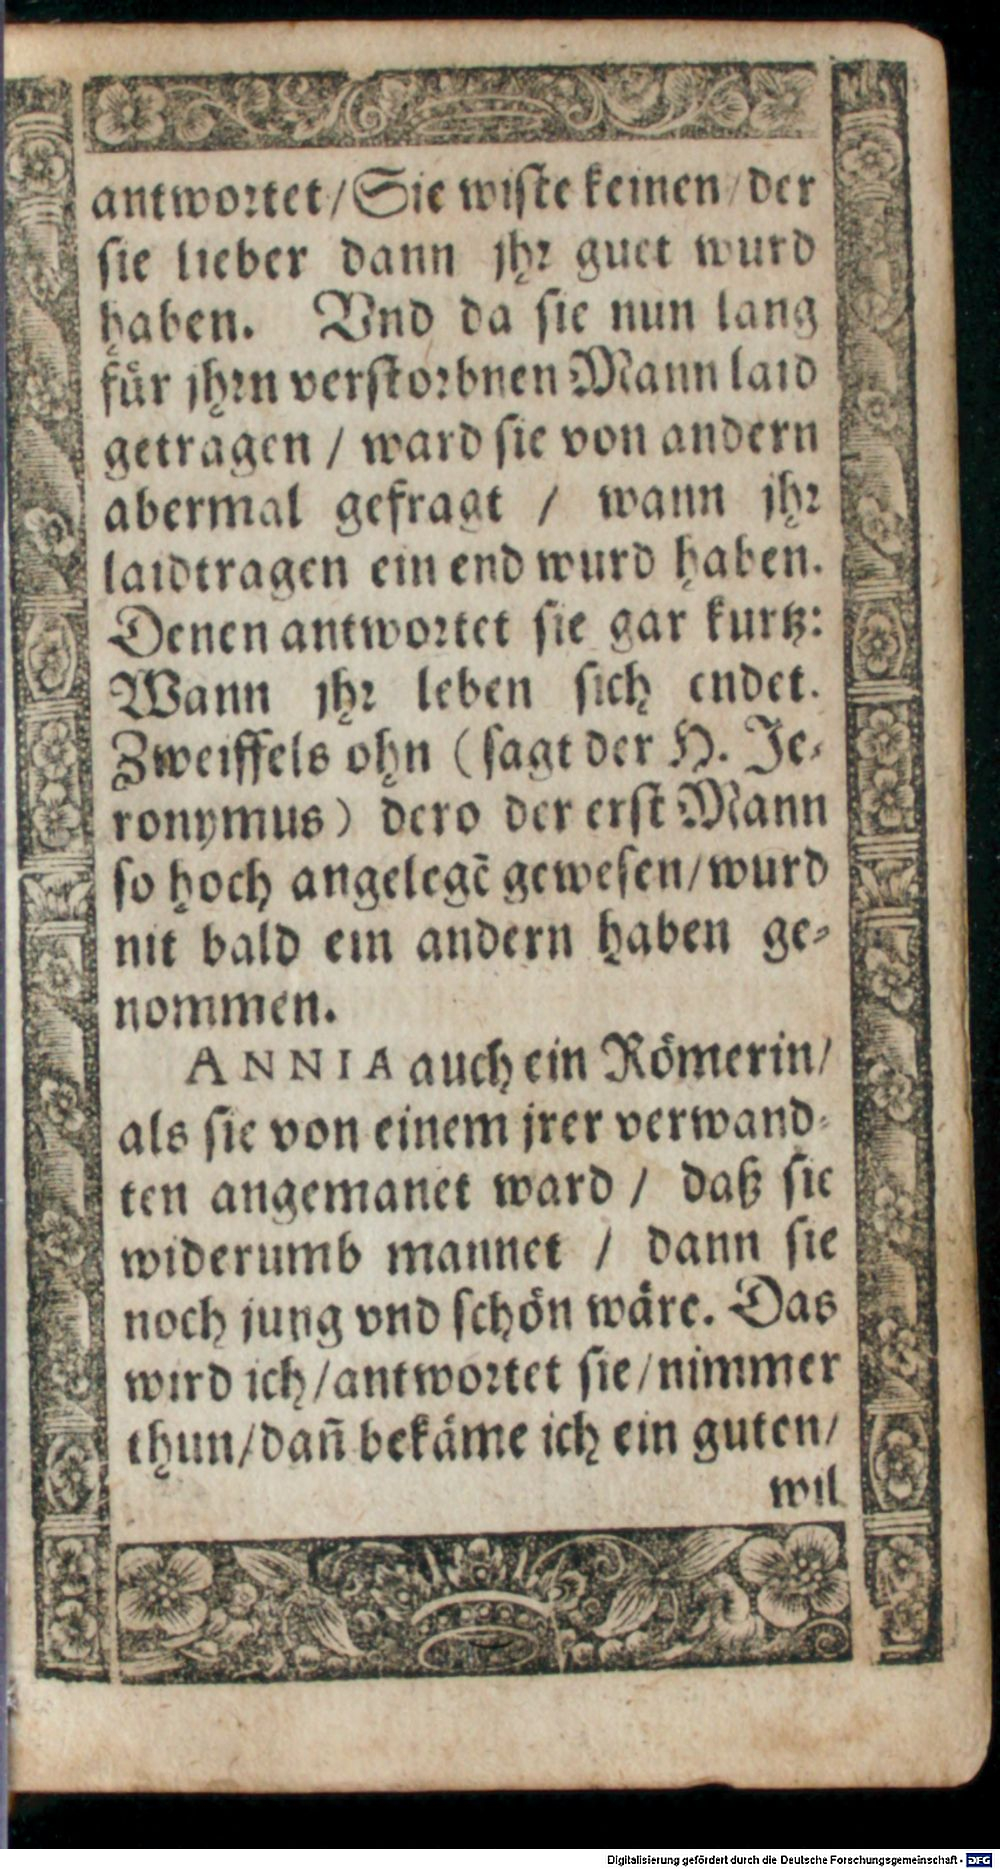 antwortet/ Sie wiste keinen/ der
sie lieber dann jhr guet wurd
haben. Vnd da sie nun lang
für jhrn verstorbnen Mann laid
getragen / ward sie von andern
abermal gefragt / wann jhr
laidtragen ein end wurd haben.
Denen antwortet sie gar kurtz:
Wann jhr leben sich endet.
Zweiffels ohn (sagt der H. Je-
ronymus) dero der erst Mann
so hoch angelegẽ gewesen/ wurd
nit bald ein andern haben ge-
nommen.
ANNIA auch ein Römerin/
als sie von einem jrer verwand-
ten angemanet ward / daß sie
widerumb mannet / dann sie
noch jung vnd schön wäre. Das
wird ich/ antwortet sie/ nimmer
thun/ dañ bekäme ich ein guten/
wil
Digitalisierung gefördert durch die Deutsche Forschungsgemeinschaft - DFG